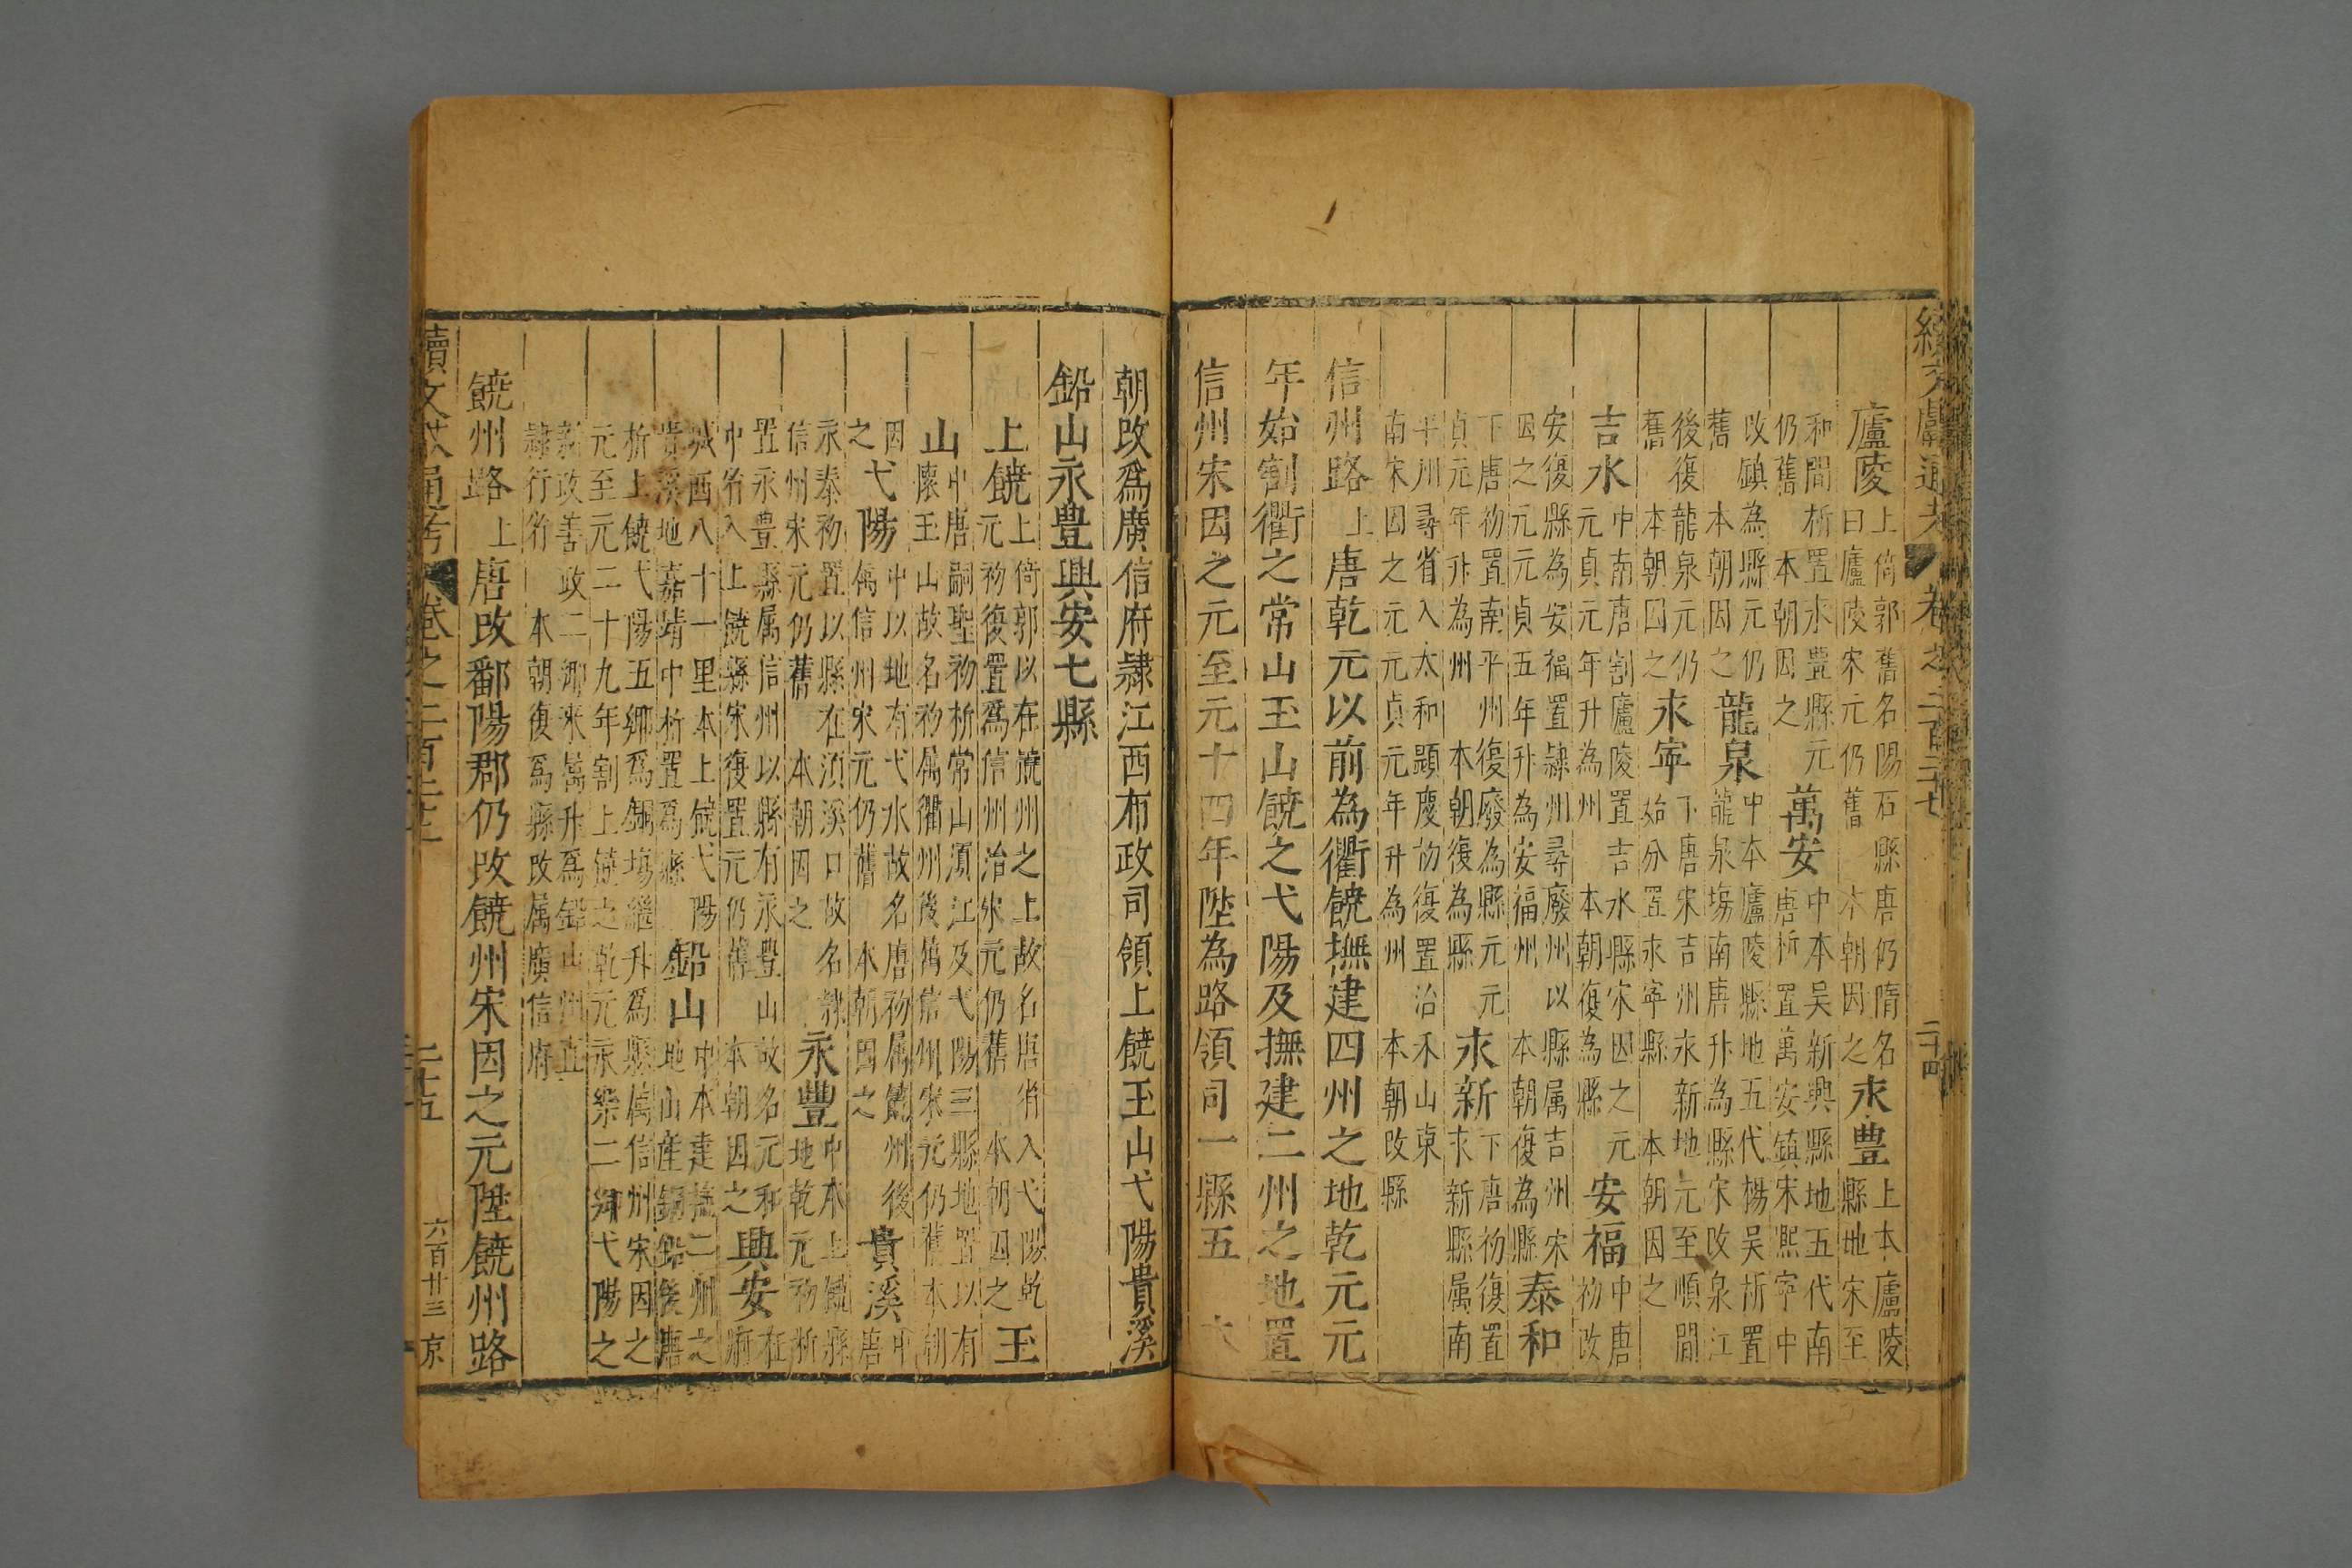 續文獻通考 卷之二百二十七 二十四
廬陵上倚郭舊名陽石縣唐仍隋名曰廬陵宋元仍舊 本朝因之永豊上本廬陵縣地宋至
和間析置永豊縣元仍舊 本朝因之萬安中本吴新興縣地五代南唐析置萬安鎮宋熈寜中
改鎮為縣元仍舊 本朝因之龍泉中本廬陵縣地五代楊吴析置龍泉塲南唐升為縣宋改泉江
後復龍泉元仍舊 本朝因之永寕下唐宋吉州永新地元至順間始分置永寕縣 本朝因之
吉水中南唐割廬陵置吉水縣宋因之元元貞元年升為州 本朝復為縣安福中唐初改
安復縣為安福置隷州尋廢州以縣属吉州宋因之元元貞五年升為安福州 本朝復為縣泰和
下唐初置南平州復廢為縣元元貞元年升為州 本朝復為縣永新下唐初復置永新縣属南
平州尋省入太和顕慶初復置治禾山東南宋因之元元貞元年升為州 本朝改縣
信州路上唐乾元以前為衢饒撫建四州之地乾元元
年始割衢之常山玉山饒之弋陽及撫建二州之地置
信州宋因之元至元十四年陞為路領司一縣五 大
朝改爲廣信府隷江西布政司領上饒玉山弋陽貴溪
鉛山永豊興安七縣
上饒上倚郭以在饒州之上故名唐省入弋陽乾元初復置爲信州治宋元仍舊 本朝因之玉
山中唐嗣聖初析常山湏江及弋陽三縣地置以有懷玉山故名初属衢州後属信州宋元仍舊本朝
因之弋陽中以地有弋水故名唐初属饒州後属信州宋元仍舊 本朝因之貴溪中唐
永泰初置以縣在湏溪口故名隷信州宋元仍舊 本朝因之永豐中本上饒縣地乾元初析
置永豊縣属信州以縣有永豊山故名元和中省入上饒縣宋復置元仍舊 本朝因之興安在府
城西八十一里本上饒弋陽貴溪地嘉靖中析置爲縣鉛山中本建撫二州之地山産銅鉛後唐
析上饒弋陽五鄉爲銅塲繼升爲縣属信州宋因之元至元二十九年割上饒之乾元永樂二鄉弋陽之
新政善政二鄉來属升爲鉛山州直隷行省 本朝復爲縣改属廣信府
饒州路上唐改鄱陽郡仍改饒州宋因之元陞饒州路
續文獻通考 卷之二百二十七 二十五 六百廿三 京